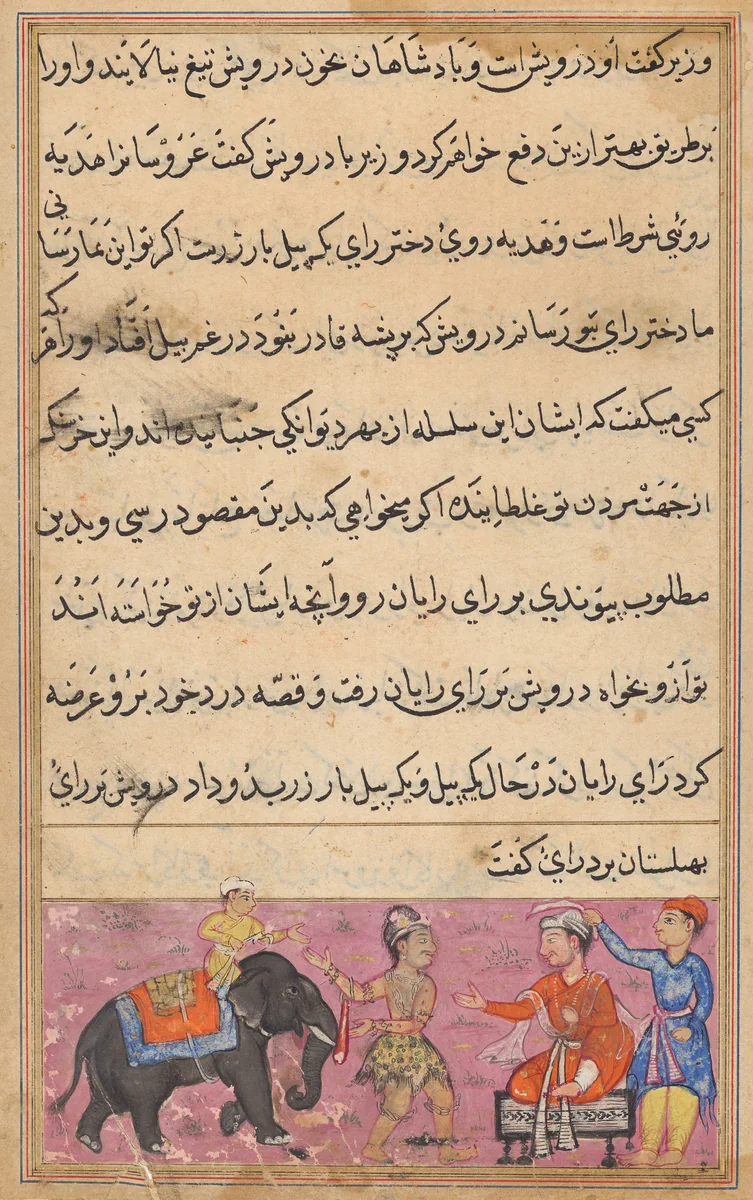 وزیر گفت او درویش است و پادشاهان بخون درویش تیغ نیالایند و اورا
بر طریق بهتر ازین دفع خواهم کرد و زیر با درویش گفت عروسانرا هدیه
روئی شرط است و هدیه روی دختر رای یک پیل بار زرست اکر تو این بما رسانی
ما دختر رای بتو رسانم درویش که بر پشه قادر نبود در غم پیل افتاد اورا هر
کسی میکفت که ایشان این سلسله از بهر دیوانکی جنبانیده اند و این خرسنک
از جهت مردن تو غلطاینده اکر میخواهی که بدین مقصود رسی و بدین
مطلوب پیوندی بر رای رایان رو و آنچه ایشان از تو خواسته اند
تو ازو بخواه درویش بر رای رایان رفت و قصه درد خود برو عرضه
کرد رای رایان در حال یک پیل و یک پیل بار زر بدو داد درویش بر رای
بهلستان برد رای کفت